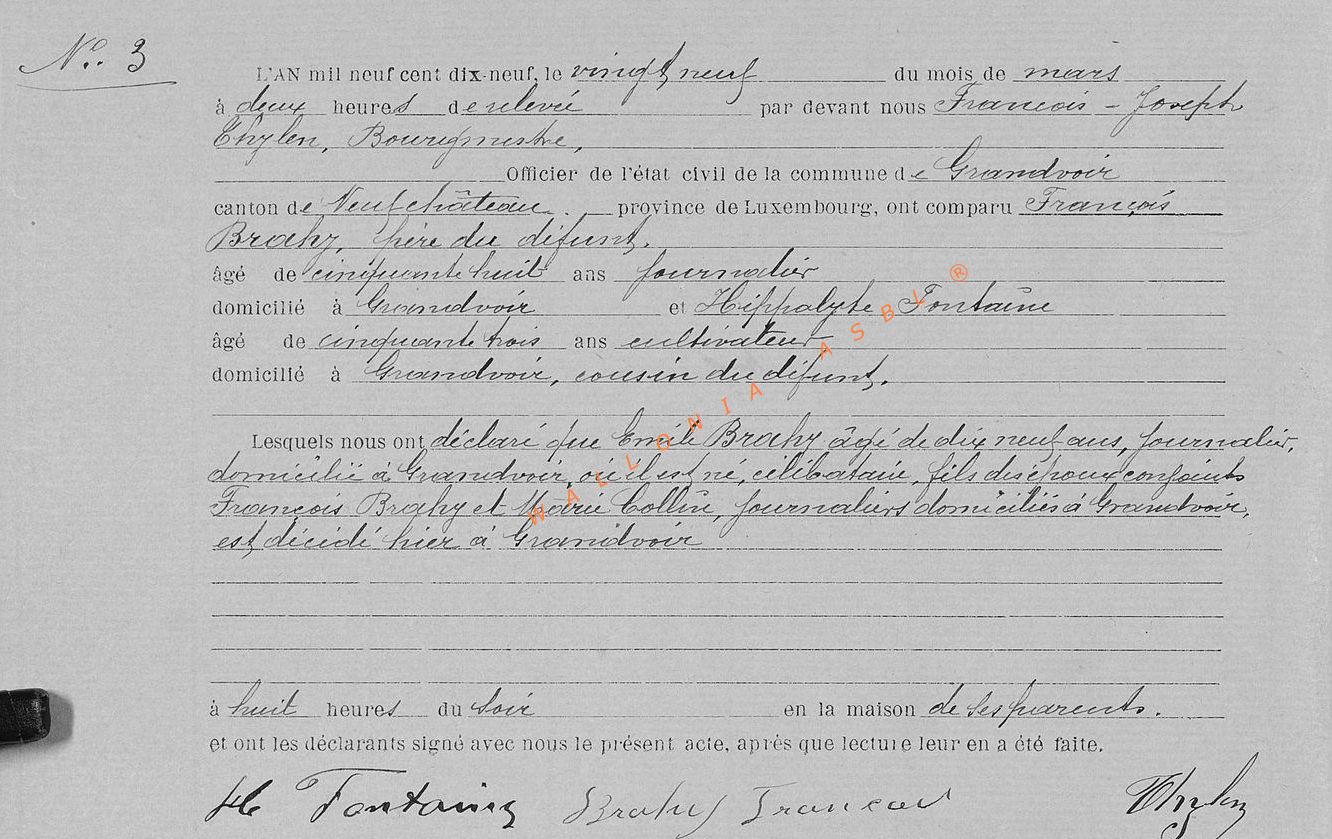 No. 3
L'AN mil neuf cent dix-neuf, le vingt neuf du mois de mars
à deux heures de relevée par devant nous François - Joseph
Thylen, Bourgmestre,
Officier de l'état civil de la commune de Grandvoir
canton de Neufchâteau. province de Luxembourg, ont comparu François
Brahy, père du défunt.
âgé de cinquante huit ans journalier
domicilié à Grandvoir et Hippolyte Fontaine
âgé de cinquante trois ans cultivateur
domicilié à Grandvoir, cousin du défunt.
Lesquels nous ont déclaré que Emile Brahy âgé de dix neuf ans, journalier,
domicilié à Grandvoir, où il est né, célibataire, fils des époux conjoints
François Brahy et Marie Collin, journaliers domiciliés à Grandvoir,
est décédé hier à Grandvoir
à huit heures du soir en la maison de ses parents.
et ont les déclarants signé avec nous le présent acte, après que lecture leur en a été faite.
H Fontaine Brahy François Thylen
WALLONIA ASBL ®